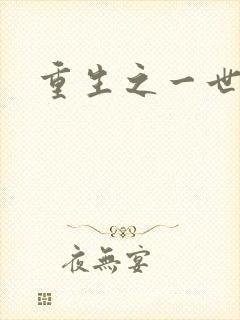 重生之一世
夜無宴